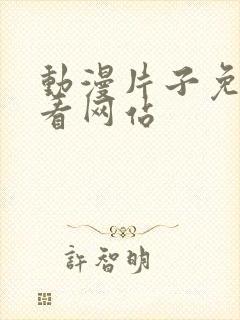 動漫片子免
看网站
許智明